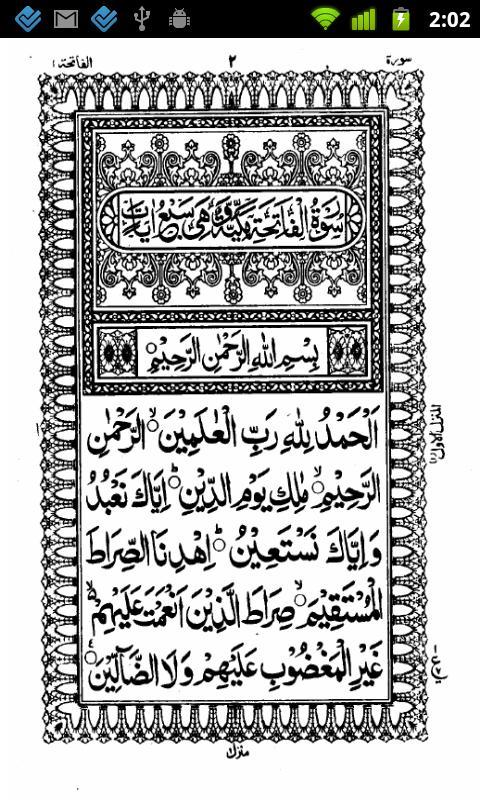 2:02
سورة ٢ الفاتحة ١
سُوْرَةُ الْفَاتِحَةِ مَكِّيَّةٌ وَّهِىَ سَبْعُ اٰيَاتٍ
بِسْمِ اللهِ الرَّحْمٰنِ الرَّحِيْمِ ○
اَلْحَمْدُ لِلّٰهِ رَبِّ الْعٰلَمِيْنَ ○ۙ الرَّحْمٰنِ
الرَّحِيْمِ ○ۙ مٰلِكِ يَوْمِ الدِّيْنِ ○ؕ اِيَّاكَ نَعْبُدُ
وَاِيَّاكَ نَسْتَعِيْنُ ○ؕ اِهْدِنَا الصِّرَاطَ
الْمُسْتَقِيْمَ ○ۙ صِرَاطَ الَّذِيْنَ اَنْعَمْتَ عَلَيْهِمْ ۙ
غَيْرِ الْمَغْضُوْبِ عَلَيْهِمْ وَلَا الضَّآلِّيْنَ ○
المنزل الاول ١
منزل